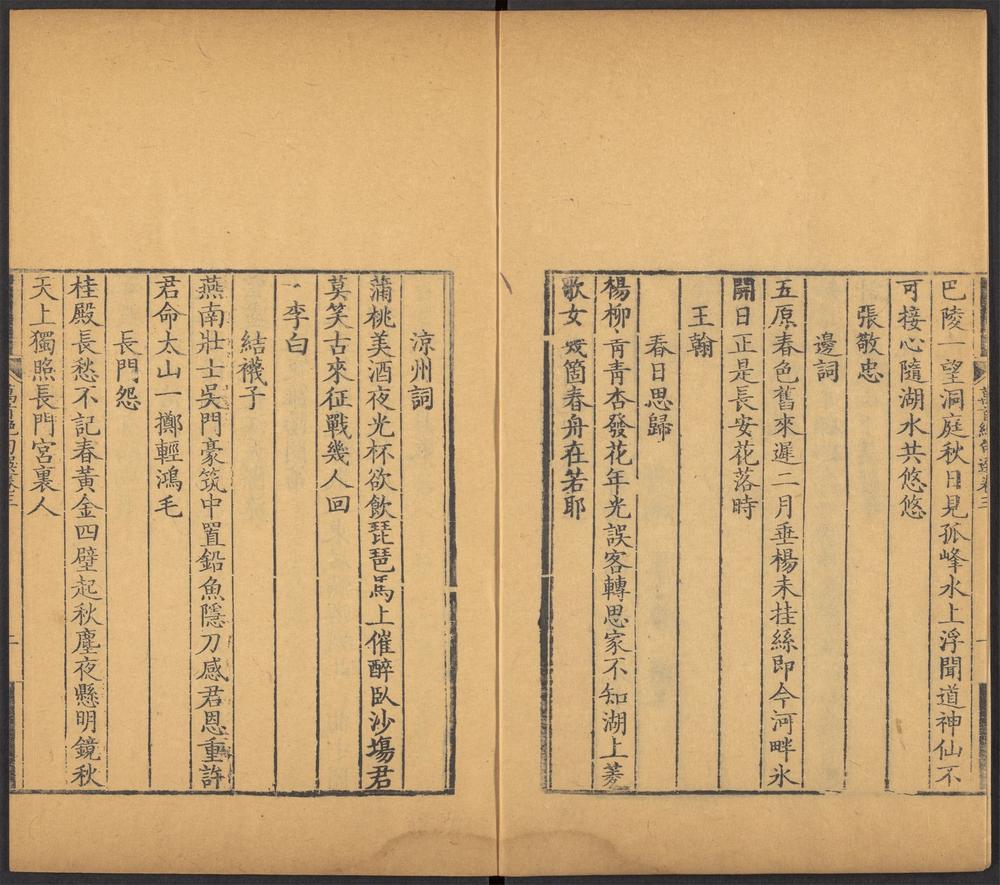 巴陵一望洞庭秋日見孤峰水上浮聞道神仙不
可接心隨湖水共悠悠
張敬忠
邊詞
五原春色舊來遲二月垂楊未挂絲即今河畔冰
開日正是長安花落時
王翰
春日思歸
楊柳青青杏發花年光誤客轉思家不知湖上菱
歌女幾箇春舟在若耶
涼州詞
蒲桃美酒夜光杯欲飲琵琶馬上催醉臥沙塲君
莫笑古來征戰幾人回
李白
結襪子
燕南壯士吳門豪筑中置鉛魚隱刀感君恩重許
君命太山一擲輕鴻毛
長門怨
桂殿長愁不記春黃金四壁起秋塵夜懸明鏡秋
天上獨照長門宮裏人